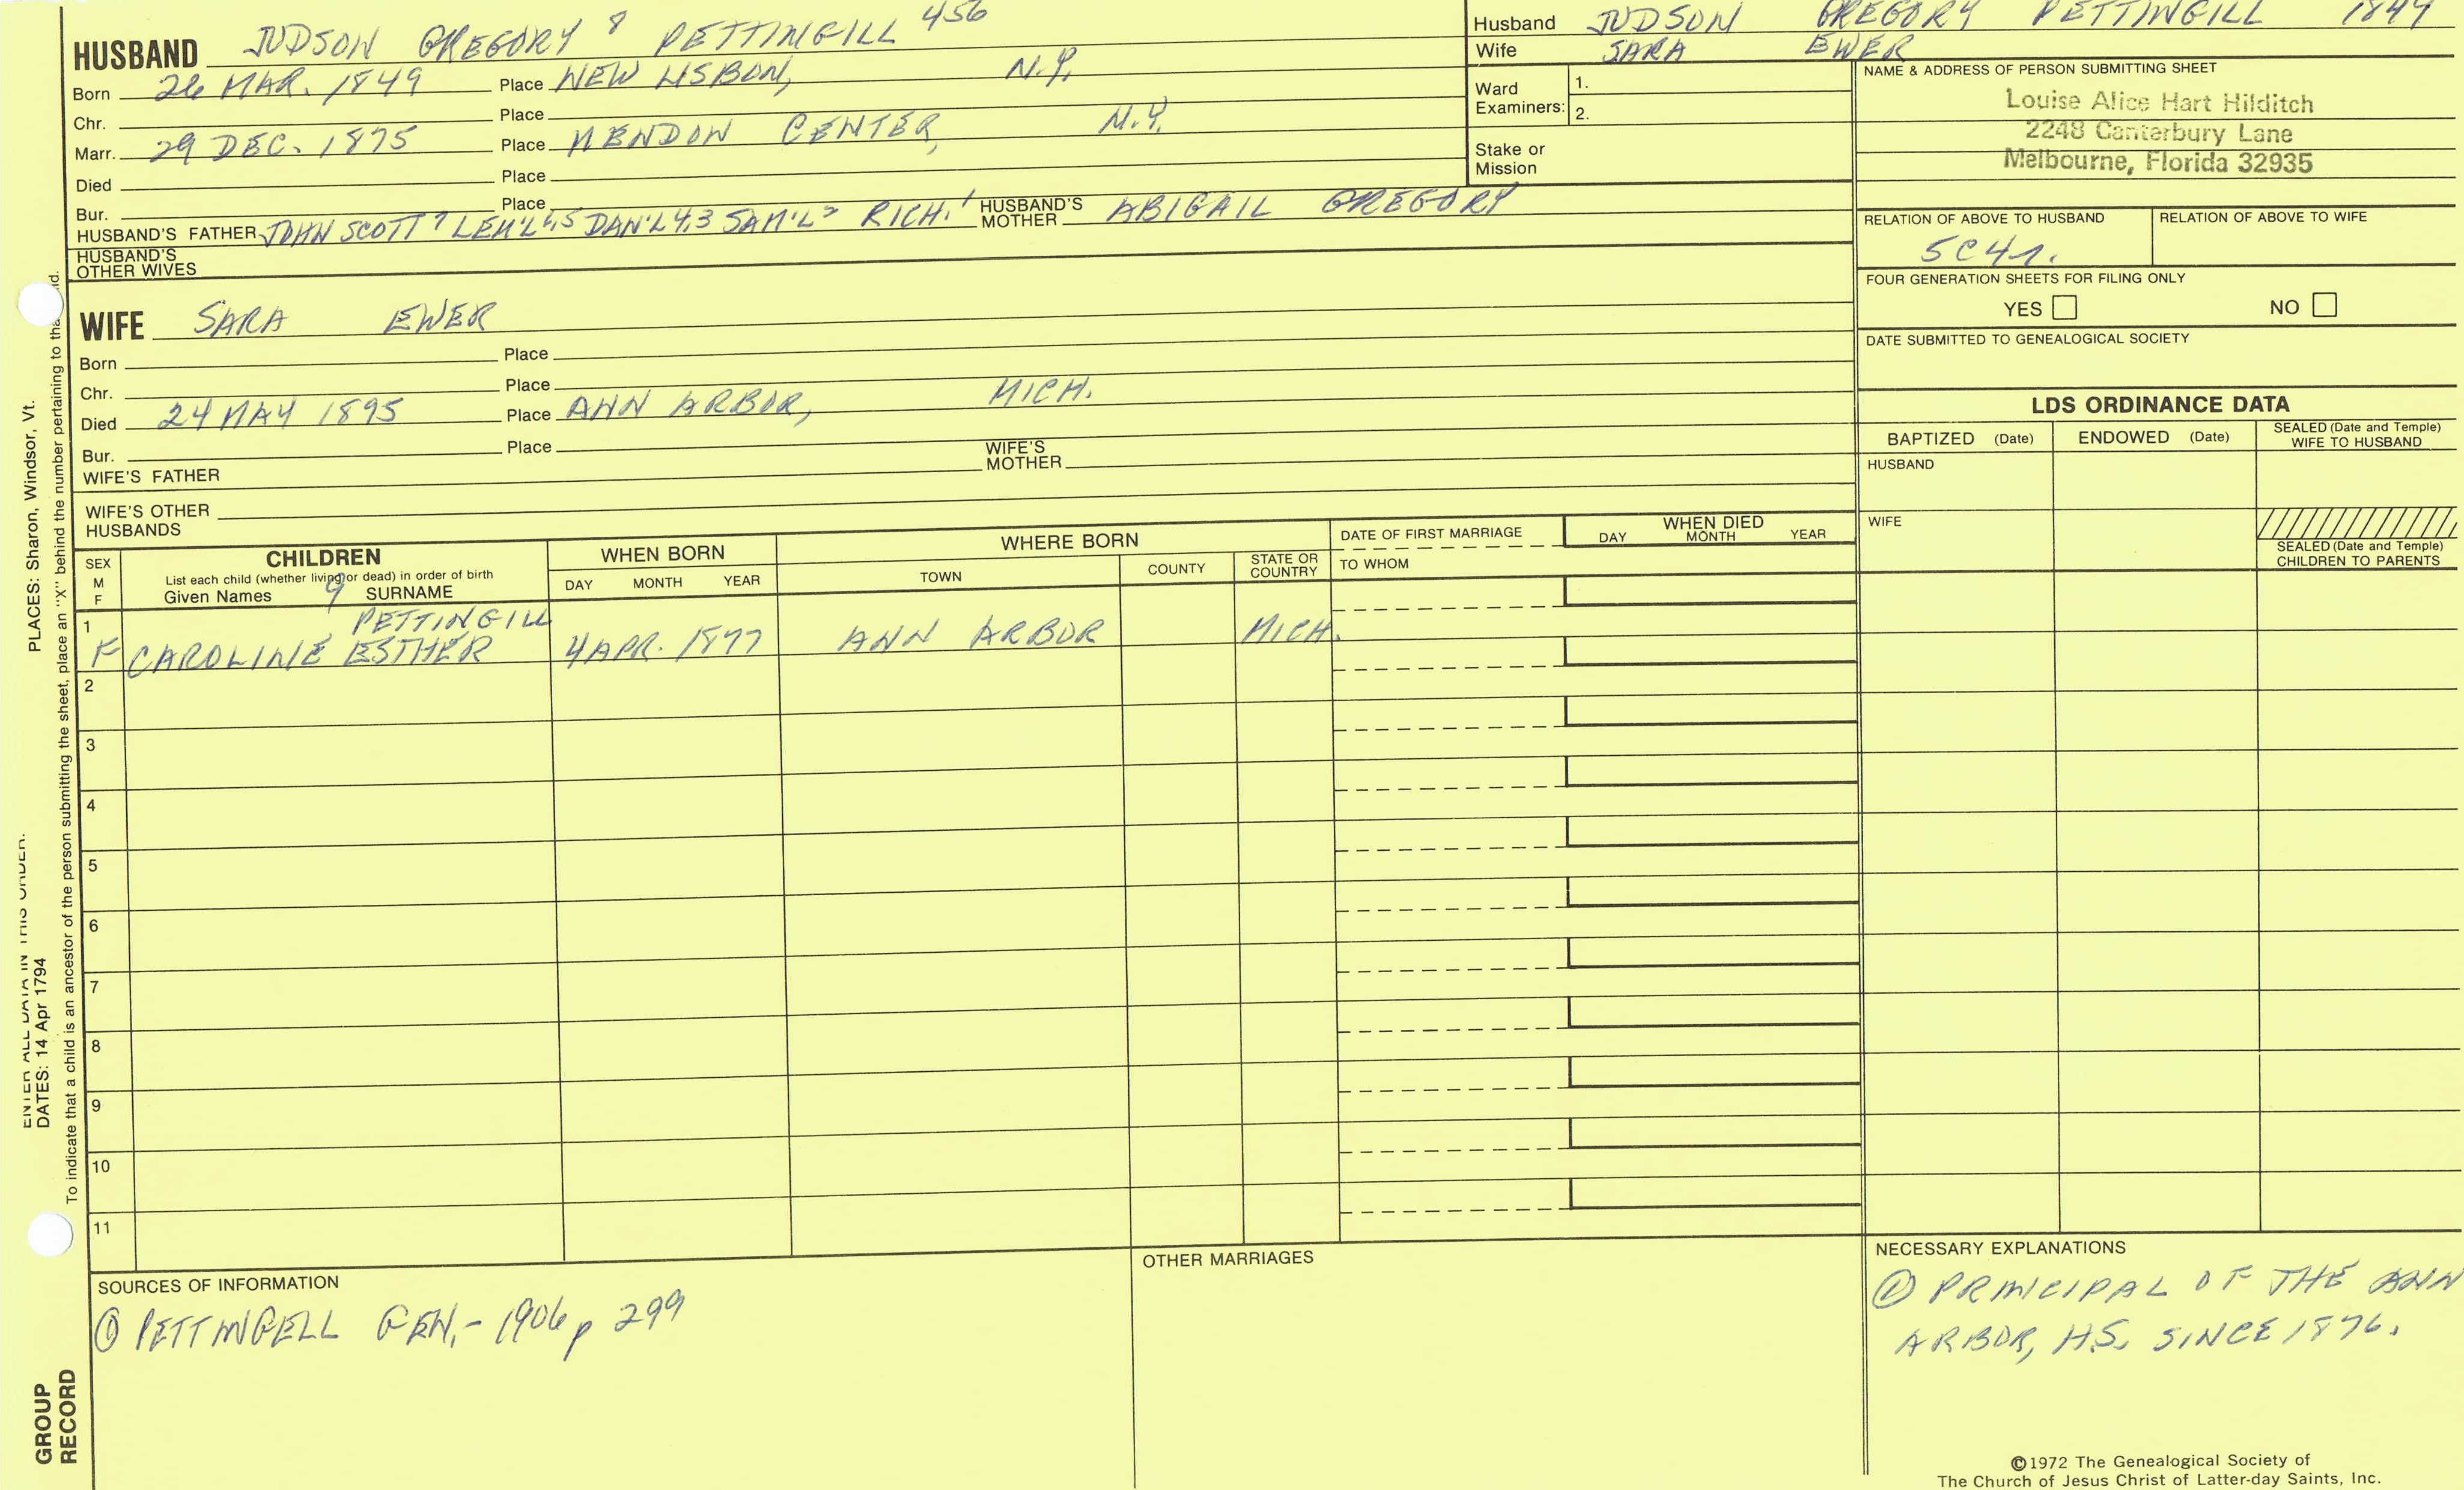 HUSBAND JUDSON GREGORY 8 PETTINGILL 456
Born 26 MAR. 1849 Place NEW LISBON, N.Y.
Chr. Place
Marr. 29 DEC. 1875 Place MENDON CENTER, N.Y.
Died Place
Bur. Place
HUSBAND'S FATHER JOHN SCOTT 7 LEM'L 6,5 DAN'L 4,3 SAM'L 2 RICH. 1 HUSBAND'S MOTHER ABIGAIL GREGORY
HUSBAND'S OTHER WIVES
WIFE SARA EWER
Born Place
Chr. Place
Died 24 MAY 1895 Place ANN ARBOR, MICH.
Bur. Place
WIFE'S FATHER WIFE'S MOTHER
WIFE'S OTHER HUSBANDS
Husband JUDSON GREGORY PETTINGILL 1849
Wife SARA EWER
Ward Examiners: 1.
2.
Stake or Mission
NAME & ADDRESS OF PERSON SUBMITTING SHEET
Louise Alice Hart Hilditch
2248 Canterbury Lane
Melbourne, Florida 32935
RELATION OF ABOVE TO HUSBAND RELATION OF ABOVE TO WIFE
5C4r.
FOUR GENERATION SHEETS FOR FILING ONLY
YES NO
DATE SUBMITTED TO GENEALOGICAL SOCIETY
LDS ORDINANCE DATA
BAPTIZED (Date) ENDOWED (Date) SEALED (Date and Temple) WIFE TO HUSBAND
HUSBAND
WIFE
SEALED (Date and Temple) CHILDREN TO PARENTS
SEX M F
CHILDREN
List each child (whether living or dead) in order of birth
Given Names 9 SURNAME
WHEN BORN
DAY MONTH YEAR
WHERE BORN
TOWN COUNTY STATE OR COUNTRY
DATE OF FIRST MARRIAGE
TO WHOM
WHEN DIED
DAY MONTH YEAR
1 PETTINGILL
F CAROLINE ESTHER 4 APR. 1877 ANN ARBOR MICH.
2
3
4
5
6
7
8
9
10
11
SOURCES OF INFORMATION
① PETTINGELL GEN.- 1906 p 299
OTHER MARRIAGES
NECESSARY EXPLANATIONS
① PRINCIPAL OF THE ANN
ARBOR, H.S. SINCE 1876.
©1972 The Genealogical Society of
The Church of Jesus Christ of Latter-day Saints, Inc.
ENTER ALL DATA IN THIS ORDER:
DATES: 14 Apr 1794 PLACES: Sharon, Windsor, Vt.
To indicate that a child is an ancestor of the person submitting the sheet, place an "X" behind the number pertaining to
GROUP
RECORD